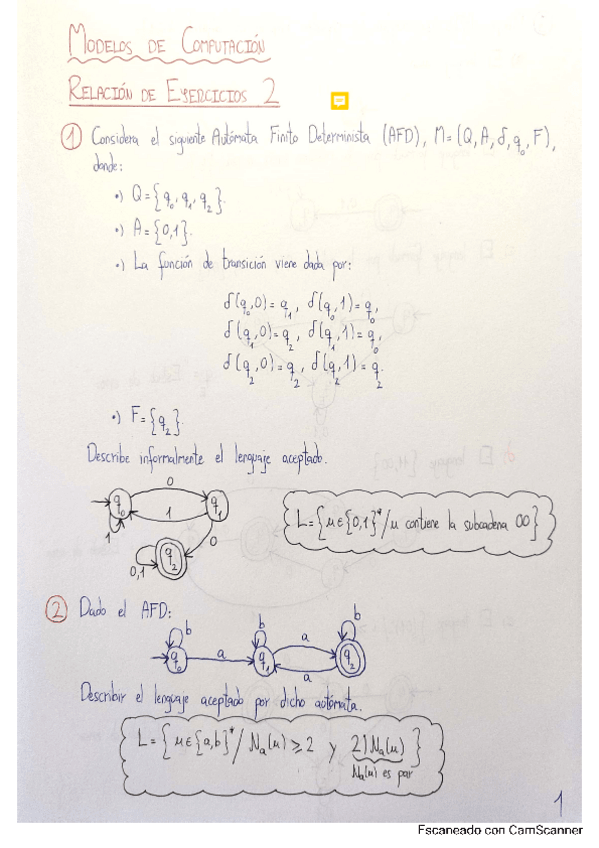 MODELOS DE COMPUTACIÓN
RELACIÓN DE EJERCICIOS 2
1 Considera el siguiente Autómata Finito Determinista (AFD), M=(Q,A,δ,q₀,F),
donde:
•) Q={q₀,q₁,q₂}.
•) A={0,1}.
•) La función de transición viene dada por:
δ(q₀,0)=q₁, δ(q₀,1)=q₀,
δ(q₁,0)=q₂, δ(q₁,1)=q₀,
δ(q₂,0)=q₂, δ(q₂,1)=q₂.
•) F={q₂}.
Describe informalmente el lenguaje aceptado.
0
q₀ q₁
1
1
0
0,1 q₂
L={u∈{0,1}*/u contiene la subcadena 00}
2 Dado el AFD:
b b b
a
q₀ a q₁ q₂
a
Describir el lenguaje aceptado por dicho autómata.
L={u∈{a,b}*/Nₐ(u)≥2 y 2|Nₐ(u)}
Nₐ(u) es par
1
Escaneado con CamScanner